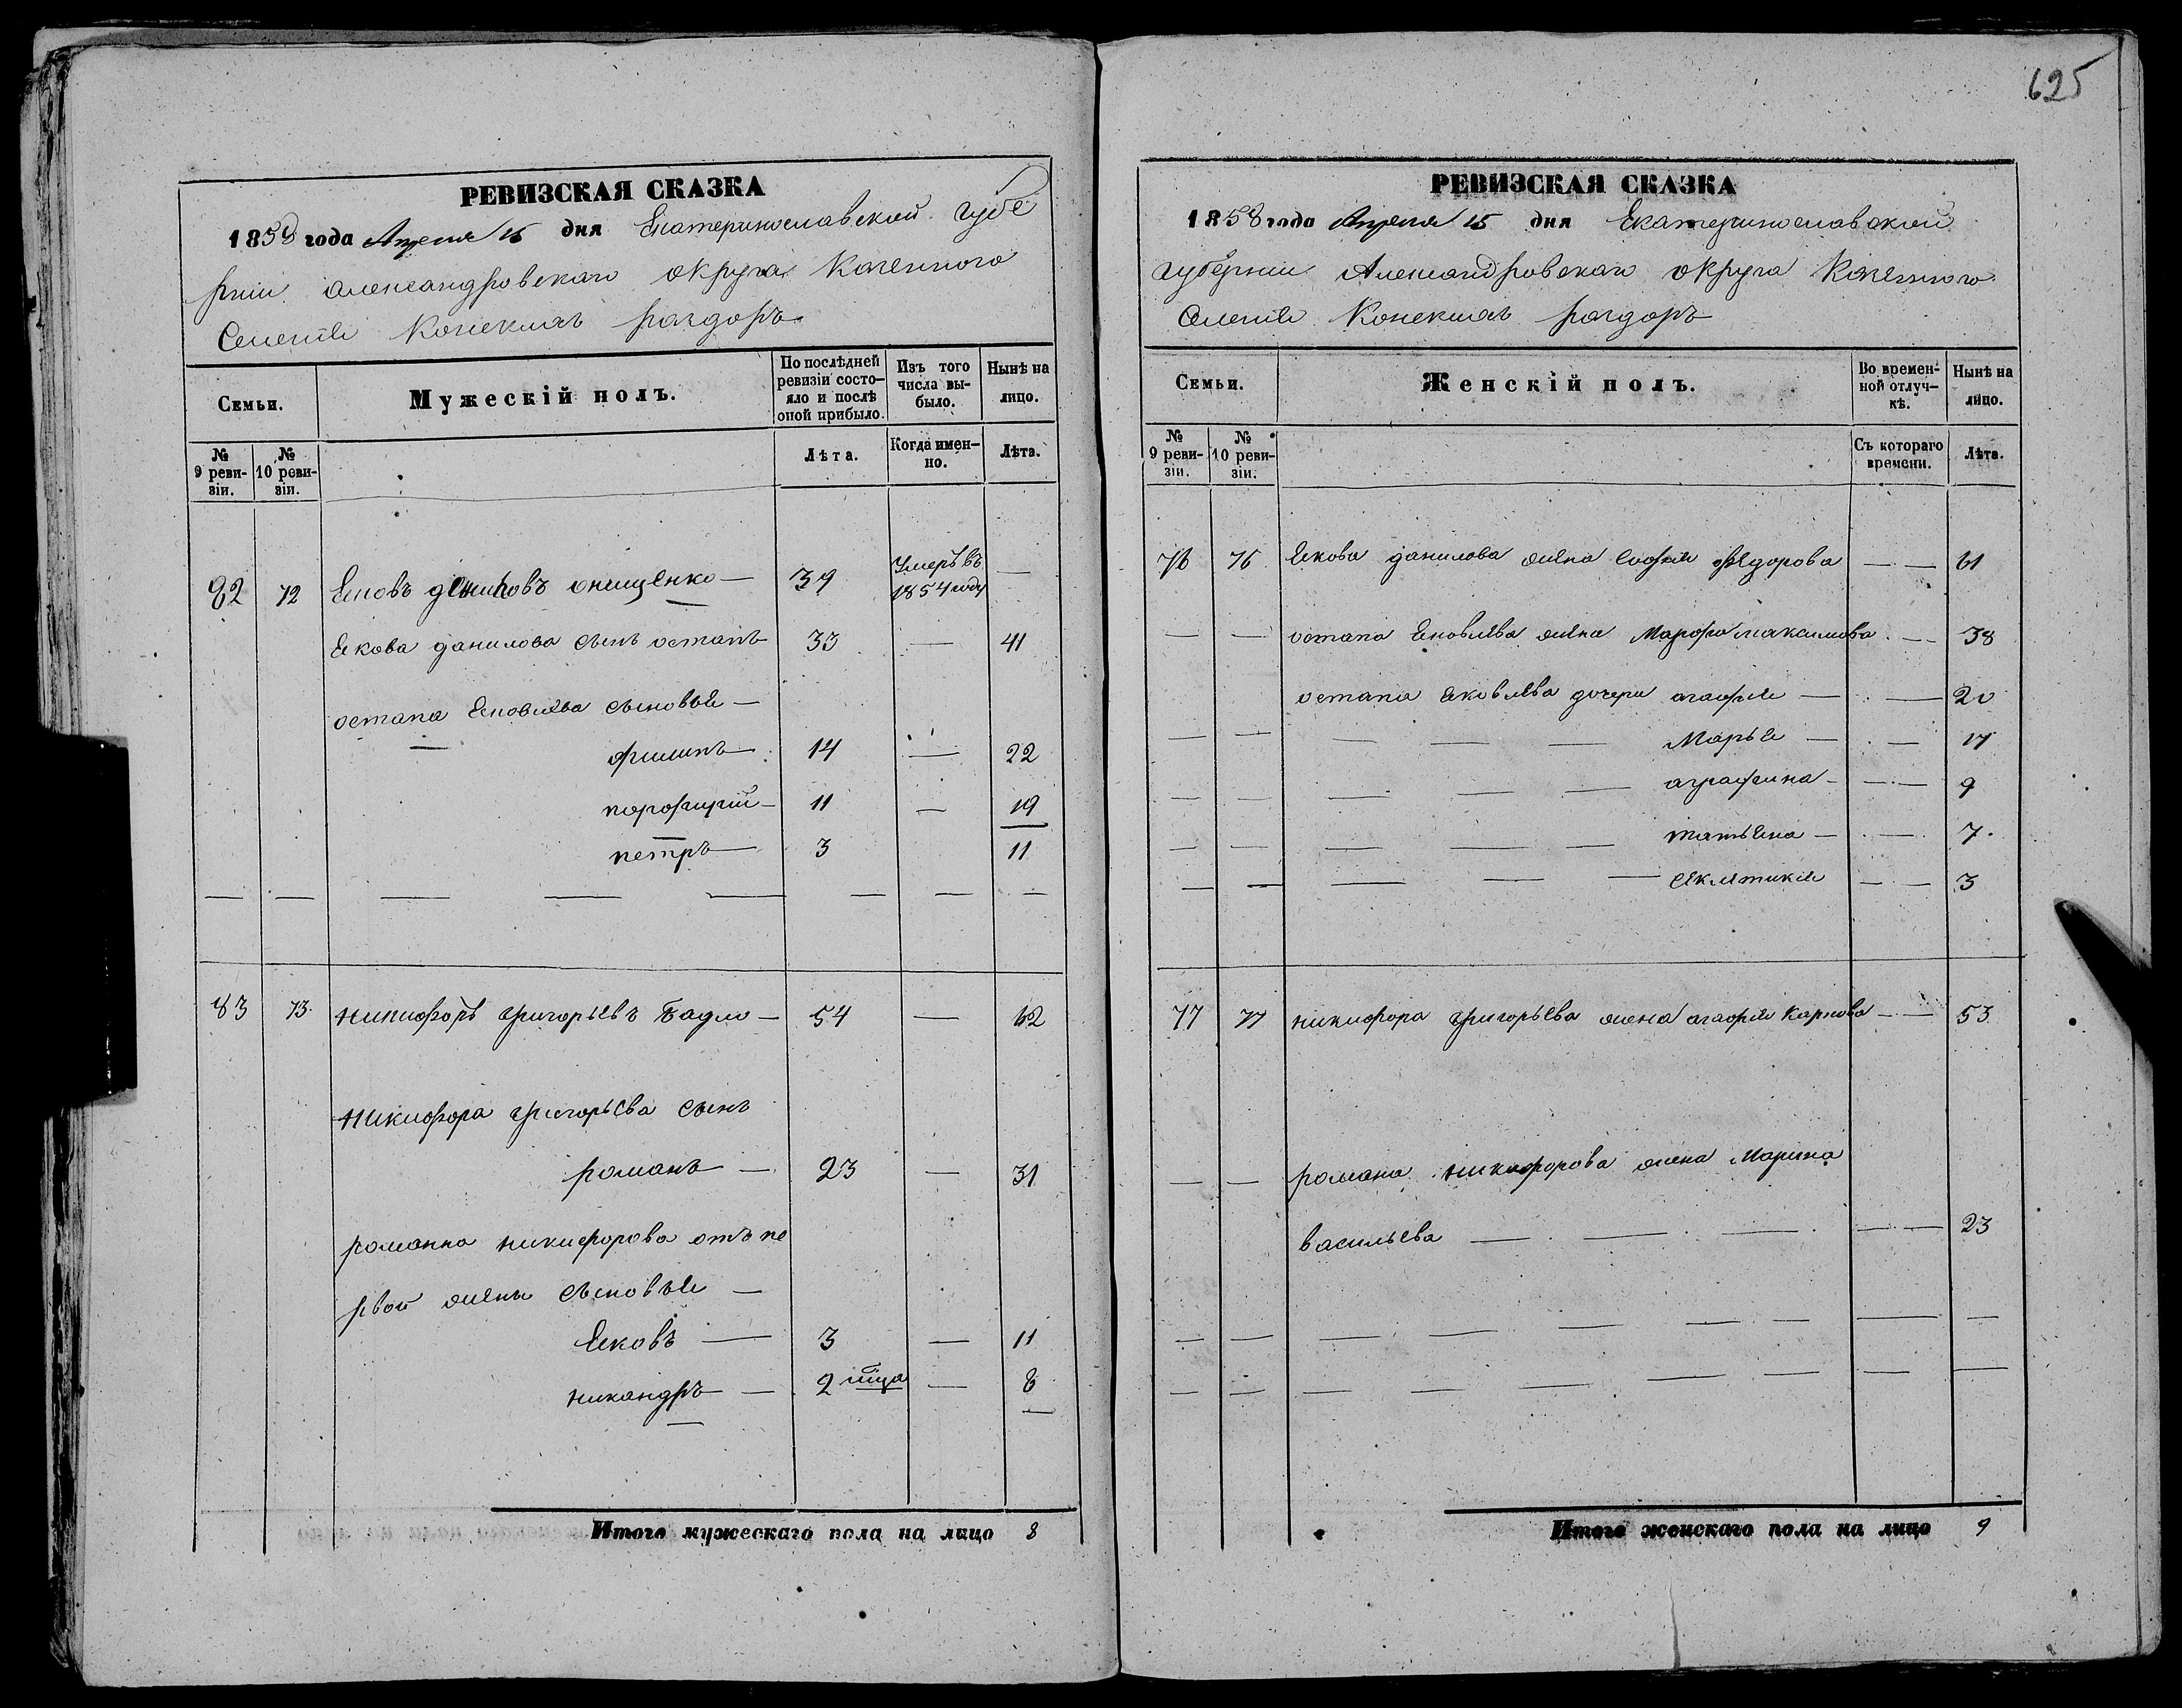 625
РЕВИЗСКАЯ СКАЗКА
1858 года Апреля 15 дня Екатеринославской губе
рніи Александровскаго округа Казенного
Селенія Конскихъ раздоръ
Семьи.
Мужескій полъ.
По послѣдней ревизіи состо-
яло и послѣ оной прибыло.
Изъ того числа вы-
было.
Нынѣ на лицо.
№ 9 реви-
зіи.
№ 10 реви-
зіи.
Лѣта.
Когда имен-
но.
Лѣта.
82 72 Яковъ онищенко — 39 Умеръ въ 1854 году —
Якова данилова сынъ остапъ 33 — 41
остапа Яковлева сыновья —
филипъ — 14 — 22
порофирій — 11 — 19
петръ — 3 11
83 73 никифоръ григорьевъ Бадло — 54 — 62
никифора григорьева сынъ
романъ — 23 — 31
романа никифорова отъ пе
рвой жены сыновья —
Яковъ — 3 — 11
никандръ — 2 — 8
Итого мужескаго пола на лицо 8
РЕВИЗСКАЯ СКАЗКА
1858 года Апреля 15 дня Екатеринославской
губерніи Александровскаго округа Казенного
Селенія Конскихъ раздоръ
Семьи.
Женскій полъ.
Во времен-
ной отлуч-
кѣ.
Нынѣ на лицо.
№ 9 реви-
зіи.
№ 10 реви-
зіи.
Съ котораго времени.
Лѣта.
76 76 Якова данилова жена софия федорова — — 61
— — остапа Яковлева жена Марфа максимова — 38
остапа Яковлева дочери агафия — — 20
— — — — — Марья — — 17
— — — — — аграфина — — 9
— — — — — татьяна — — 7
— — — — — — — 3
77 77 никифора григорьева жена агафия Карпова — — 53
— — романа никифорова жена Марина
васильева — — — — — 23
Итого женскаго пола на лицо 9